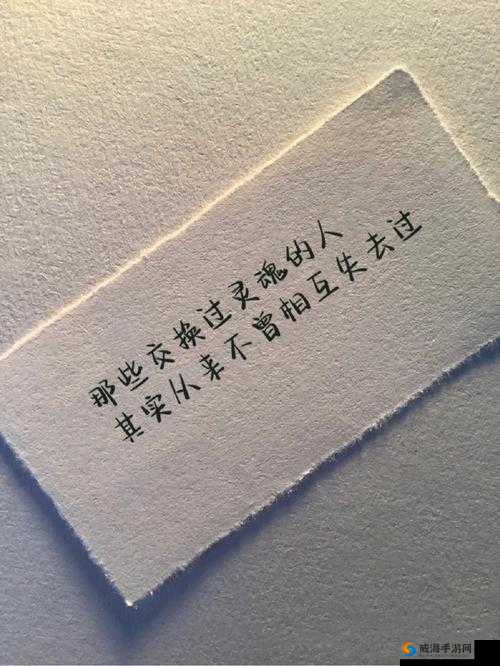 那些交换过灵魂的人
其实从来不曾相互失去过
威海手游网